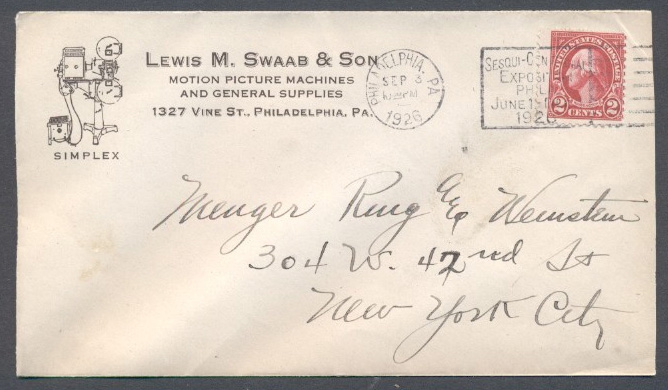 LEWIS M. SWAAB & SON
MOTION PICTURE MACHINES
AND GENERAL SUPPLIES
1327 VINE ST., PHILADELPHIA, PA.
SIMPLEX
PHILADELPHIA, PA.
SEP 3
PM
1926
SESQUI-CEN
EXPOSI
PHIL
JUNE 1
1926
UNITED STATES POSTAGE
2 CENTS 2
Menger Ring & Weinstein
304 W. 42nd St
New York City